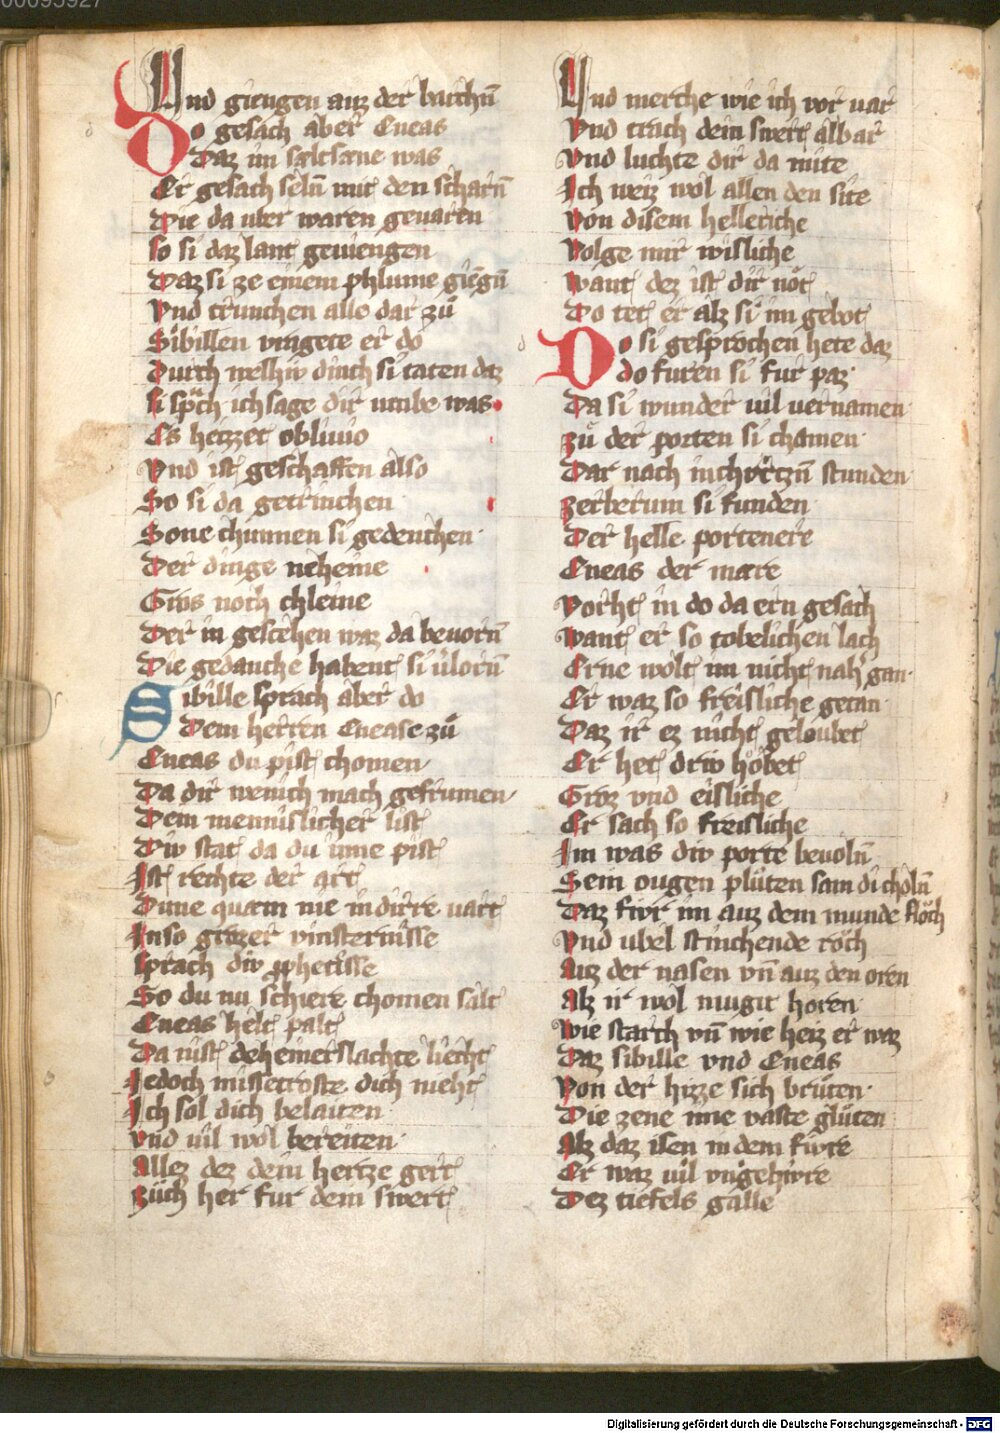 00095927
Vnd giengen auz der barchn̄
Do gesach aber Eneas
Daz im sæltsæne was
Er gesach seln̄ mit den scharn̄
Die da vber waren geuaren
so si daz lant geuiengen
Daz si ze einem phlume gieg̅n̄
Vnd trunchen alle dar zuͦ
Sibillen vragete er do
Durch welhiv dinch si taten daz
si spͣch ich sage dir umbe was
Es heizzet obliuio
Vnd ist geschaffen also
So si da getrinchen
Sone chunnen si gedenchen
Der dinge neheine
Groz noch chleine
Der in gescehen waz da beuorn̄
Die gedanche habent si v̓lorn̄
Sibille sprach aber do
Dem herren Enease zuͦ
Eneas du pist chomen
Da dir wenich mach gefrumen
Dem mennislicher list
Div stat da du inne pist
Ist rechte der art
Dune quæm nie in dirre uart
In so grozer vinsternisse
sprach div ꝓphetisse
So du nu schiere chomen salt
Eneas helt palt
Da nist deheinerslachte liecht
Jedoch missetroste dich nieht
Ich sol dich belaiten
vnd uil wol bereiten
Allez dez dein hertze gert
Züch her fur dein swert
Vnd merche wie ich vor uar
Vnd trach dein swert albar
Vnd luchte dir da mite
Ich weiz wol allen den site
Von disem helleriche
Volge mir wisliche
Want dez ist dir not
Do tet er alz si im gebot
Do si gesprochen hete daz
do furen si fur paz
Da si wunder uil uernamen
zuͦ der porten si chomen
Dar nach in chvrtzn̄ stunden
zerberum si funden
Der helle portenere
Eneas der mære
Vorht in do da ern gesach
Want er so tobelichen lach
Erne wolt im nicht nah gan
Er waz so freisliche getan
Daz ir ez nicht geloubet
Er het driv hoͮbet
Groz vnd eisliche
Er sach so freisliche
Im was div porte beuoln̄
Sein ougen pluͤten sam di choln̄
Daz fivr im auz dem munde floͮch
Vnd vbel stinchende roͮch
Auz der nasen vn̄ auz den oren
Alz ir wol mugit horen
Wie starch vn̄ wie heiz er waz
Daz sibille vnd Eneas
Von der hizze sich bruͤten
Die zene ime vaste gluͤten
Alz daz isen in dem fivre
Er waz uil vngehivre
Dez tiefels galle
Digitalisierung gefördert durch die Deutsche Forschungsgemeinschaft - DFG